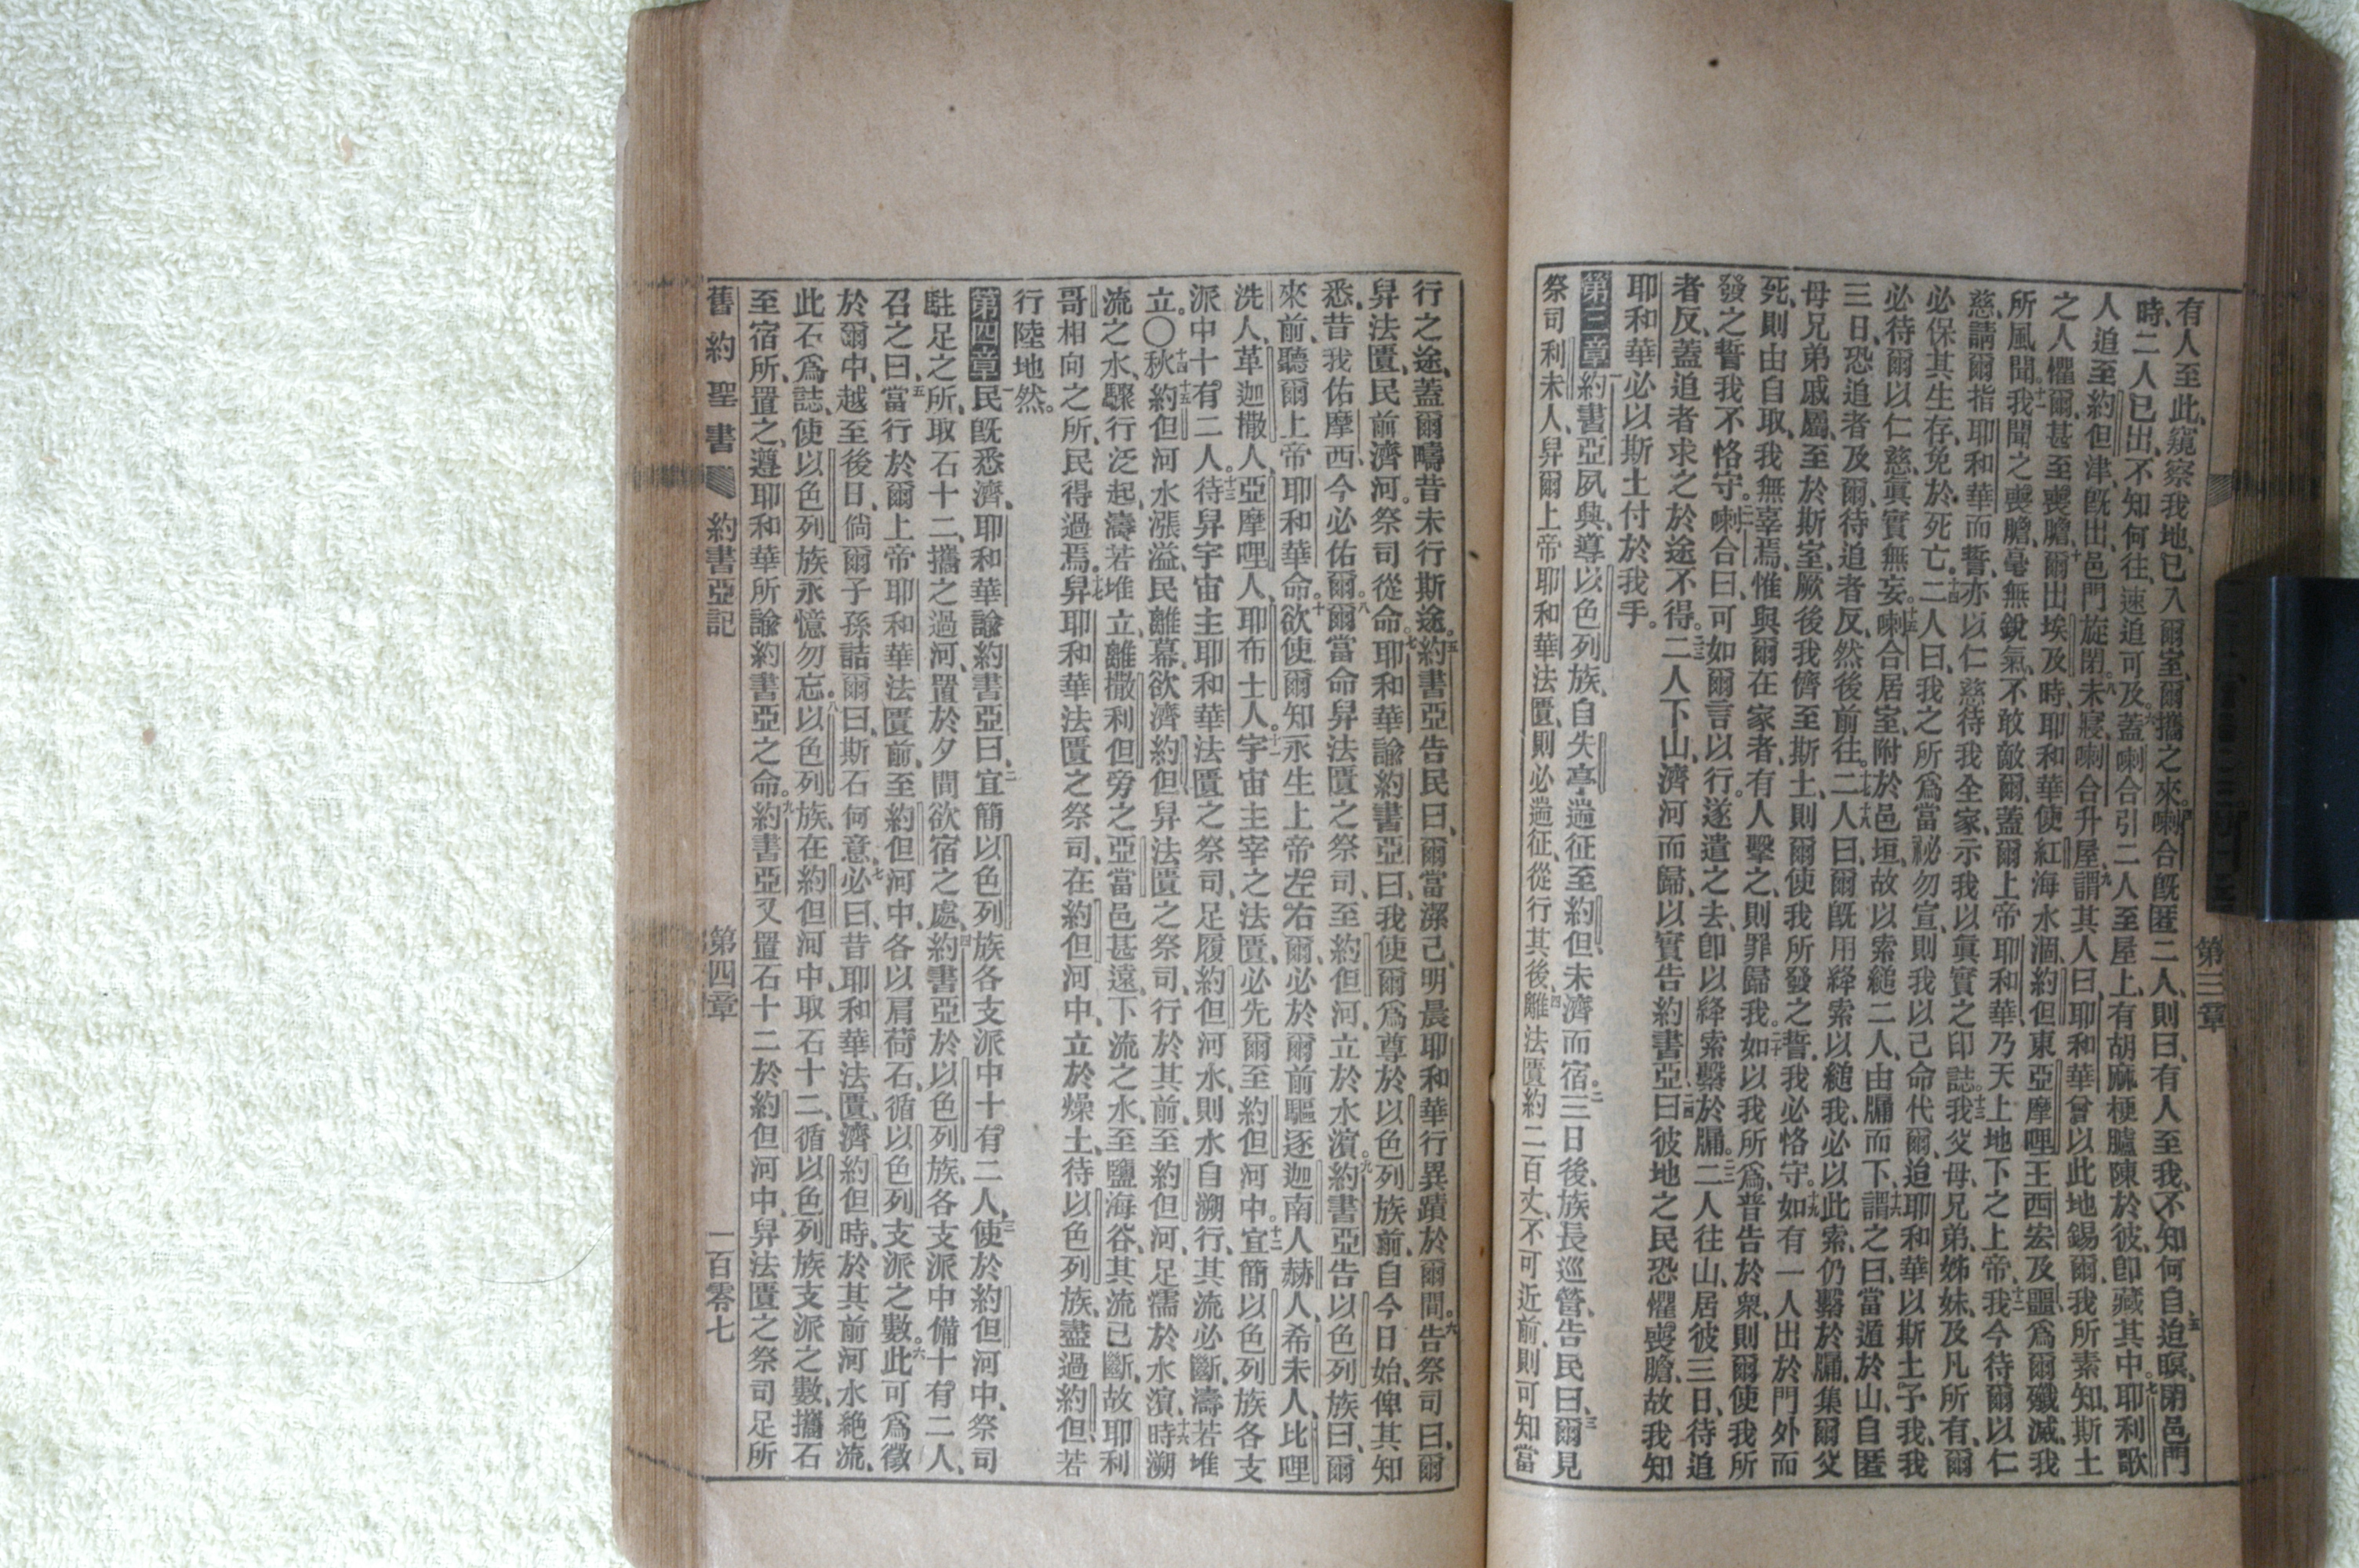 第三章
有人至此、窺察我地、已入爾室、爾攜之來。喇合旣匿二人、則曰、有人至我、不知何自、迨暝、閉邑門
時、二人已出、不知何往、速追可及。蓋喇合引二人至屋上、有胡麻梗臚陳於彼、卽藏其中。耶利歌
人追至約但津、旣出、邑門旋閉。未寢、喇合升屋、謂其人曰、耶和華曾以此地錫爾、我所素知、斯土
之人懼爾、甚至喪膽、爾出埃及時、耶和華使紅海水涸、約但東、亞摩哩王西宏及噩、爲爾殲滅、我
所風聞。我聞之喪膽、毫無銳氣、不敢敵爾、蓋爾上帝耶和華、乃天上地下之上帝、我今待爾以仁
慈、請爾指耶和華而誓、亦以仁慈待我全家、示我以眞實之印誌。我父母、兄弟、姊妹、及凡所有、爾
必保其生存、免於死亡。二人曰、我之所爲、當祕勿宣、則我以己命代爾、迨耶和華以斯土予我、我
必待爾以仁慈、眞實無妄。喇合居室、附於邑垣、故以索縋二人、由牖而下、謂之曰、當遁於山、自匿
三日、恐追者及爾、待追者反、然後前往。二人曰、爾旣用絳索以縋我、必以此索、仍繫於牖、集爾父
母兄弟戚屬、至於斯室、厥後我儕至斯土、則爾使我所發之誓、我必恪守。如有一人出於門外而
死、則由自取、我無辜焉、惟與爾在家者、有人擊之、則罪歸我。如以我所爲、普告於衆、則爾使我所
發之誓、我不恪守。喇合曰、可如爾言以行。遂遣之去、卽以絳索繫於牖。二人往山、居彼三日、待追
者反、蓋追者求之於途不得。二人下山、濟河而歸、以實告約書亞、曰、彼地之民恐懼喪膽、故我知
耶和華必以斯土付於我手。
第三章約書亞夙興、導以色列族、自失亭遄征至約但、未濟而宿。三日後、族長巡營、告民曰、爾見
祭司利未人、舁爾上帝耶和華法匱、則必遄征、從行其後、離法匱約二百丈、不可近前、則可知當
行之途、蓋爾疇昔未行斯途。約書亞告民曰、爾當潔己、明晨耶和華行異蹟於爾間。告祭司曰、爾
舁法匱、民前濟河。祭司從命。耶和華諭約書亞曰、我使爾爲尊於以色列族前、自今日始、俾其知
悉、昔我佑摩西、今必佑爾。爾當命舁法匱之祭司、至約但河、立於水濱。約書亞告以色列族曰、爾
來前、聽爾上帝耶和華命。欲使爾知永生上帝左右爾、必於爾前驅逐迦南人、赫人、希未人、比哩
洗人、革迦撒人、亞摩哩人、耶布士人。宇宙主宰之法匱、必先爾至約但河中。宜簡以色列族各支
派中十有二人。待舁宇宙主耶和華法匱之祭司、足履約但河水、則水自溯行、其流必斷、濤若堆
立。〇秋約但河水漲溢、民離幕、欲濟約但、舁法匱之祭司、行於其前、至約但河、足濡於水濱、時溯
流之水、驟行泛起、濤若堆立、離撒利但旁之亞當邑甚遠、下流之水、至鹽海谷、其流已斷、故耶利
哥相向之所、民得過焉。舁耶和華法匱之祭司、在約但河中、立於燥土、待以色列族盡過約但、若
行陸地然。
第四章民旣悉濟、耶和華諭約書亞曰、宜簡以色列族各支派中十有二人、使於約但河中、祭司
駐足之所、取石十二、攜之過河、置於夕間欲宿之處。約書亞於以色列族、各支派中備十有二人、
召之曰、當行於爾上帝耶和華法匱前、至約但河中、各以肩荷石、循以色列支派之數。此可爲徵
於爾中、越至後日、倘爾子孫詰爾曰、斯石何意、必曰、昔耶和華法匱、濟約但時、於其前河水絶流、
此石爲誌、使以色列族永憶勿忘。以色列族、在約但河中、取石十二、循以色列族支派之數、攜石
至宿所、置之、遵耶和華所諭約書亞之命。約書亞又置石十二於約但河中、舁法匱之祭司足所
舊約聖書 約書亞記 第四章 一百零七